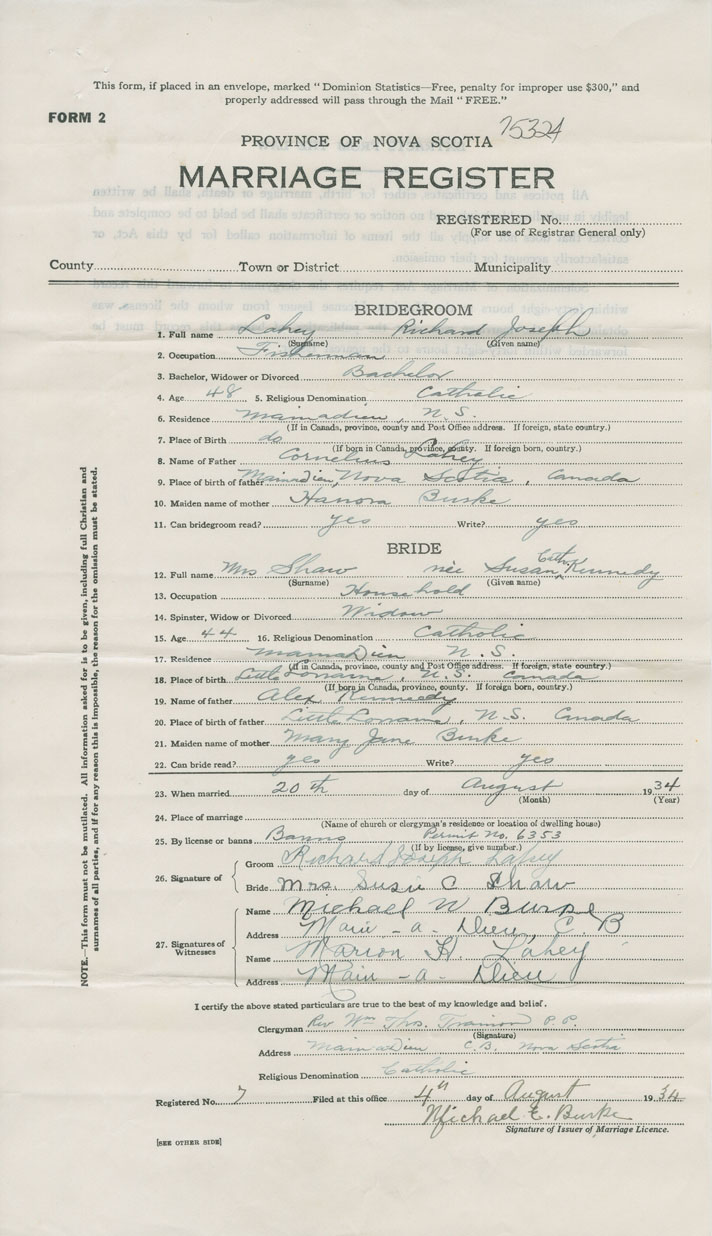 This form, if placed in an envelope, marked "Dominion Statistics—Free, penalty for improper use $300," and
properly addressed will pass through the Mail "FREE."
FORM 2
75324
PROVINCE OF NOVA SCOTIA
MARRIAGE REGISTER
REGISTERED No.
(For use of Registrar General only)
County Town or District Municipality
BRIDEGROOM
1. Full name Lahey Richard Joseph
(Surname) (Given name)
2. Occupation Fisherman
3. Bachelor, Widower or Divorced Bachelor
4. Age 48 5. Religious Denomination Catholic
6. Residence Mainadieu, N.S.
(If in Canada, province, county and Post Office address. If foreign, state country.)
7. Place of Birth do
(If born in Canada, province, county. If foreign born, country.)
8. Name of Father Cornelius Lahey
9. Place of birth of father Mainadieu, Nova Scotia, Canada
10. Maiden name of mother Hanora Burke
11. Can bridegroom read? yes Write? yes
BRIDE
12. Full name Mrs Shaw née Susan Cath. Kennedy
(Surname) (Given name)
13. Occupation Household
14. Spinster, Widow or Divorced Widow
15. Age 44 16. Religious Denomination Catholic
17. Residence Mainadieu N.S.
(If in Canada, province, county and Post Office address. If foreign, state country.)
18. Place of birth Little Lorraine, N.S. Canada
(If born in Canada, province, county. If foreign born, country.)
19. Name of father Alex Kennedy
20. Place of birth of father Little Lorraine, N.S. Canada
21. Maiden name of mother Mary Jane Burke
22. Can bride read? yes Write? yes
23. When married 20th day of August 1934
(Month) (Year)
24. Place of marriage
(Name of church or clergyman's residence or location of dwelling house)
25. By license or banns Banns Permit No. 6353
(If by license, give number.)
26. Signature of
Groom Richard Joseph Lahey
Bride Mrs. Susie C Shaw
27. Signatures of Witnesses
Name Michael W Burke
Address Main-a-Dieu, C.B
Name Marion H. Lahey
Address Main-a-Dieu
I certify the above stated particulars are true to the best of my knowledge and belief.
Clergyman Rev Wm Thos. Trainor P.P.
(Signature)
Address Mainadieu C.B. Nova Scotia
Religious Denomination Catholic
Registered No. 7 Filed at this office 4th day of August 1934
Michael E. Burke
Signature of Issuer of Marriage Licence.
[SEE OTHER SIDE]
NOTE.—This form must not be mutilated. All information asked for is to be given, including full Christian and
surnames of all parties, and if for any reason this is impossible, the reason for the omission must be stated.